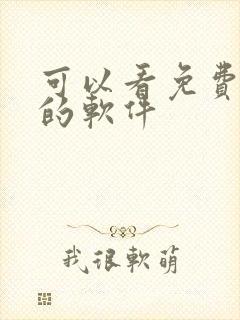 可以看免費
的軟件
我很軟萌